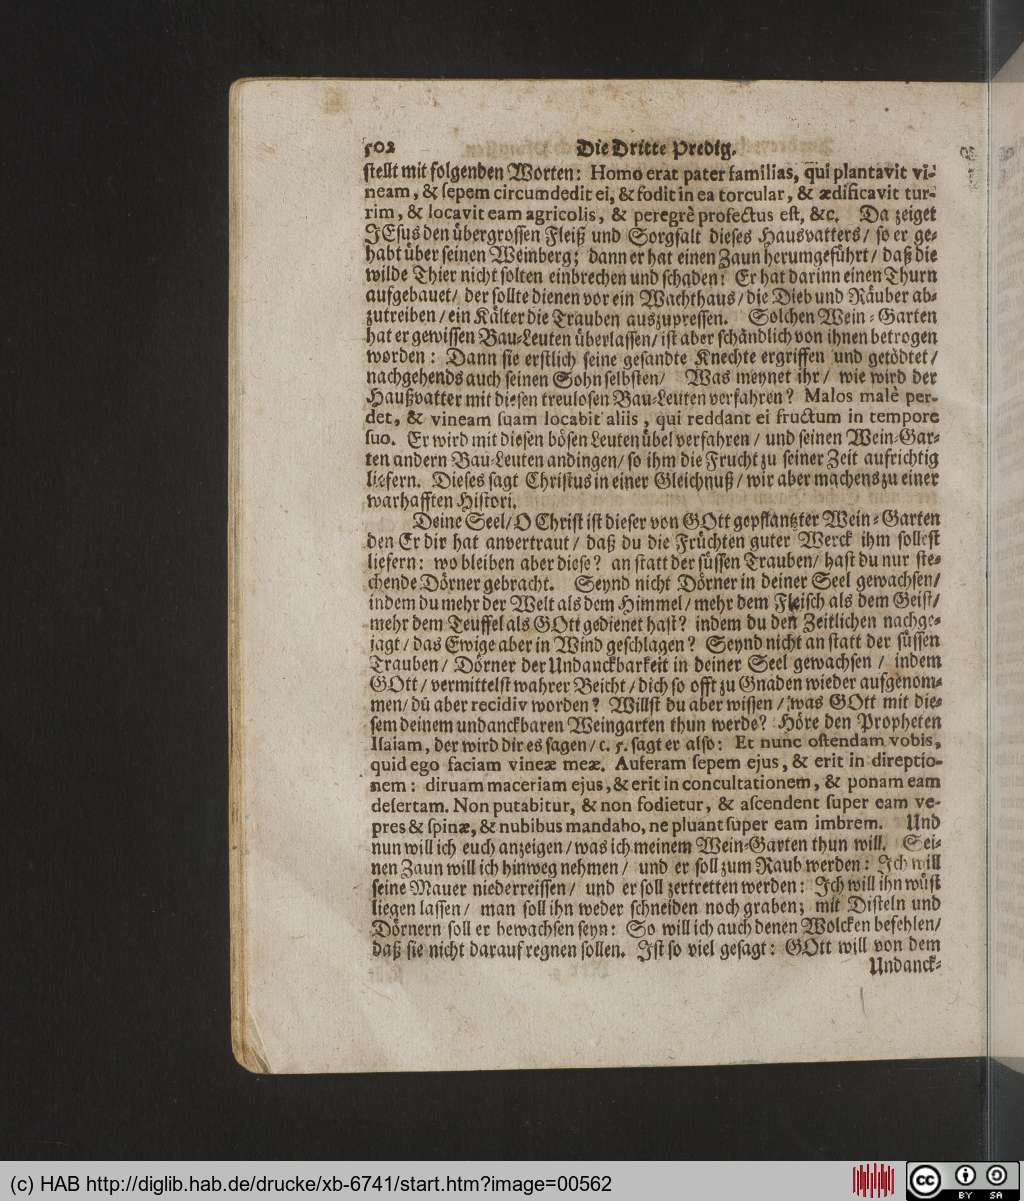 502 Die Dritte Predig.
stellt mit folgenden Worten: Homo erat pater familias, qui plantavit vi-
neam, & sepem circumdedit ei, & fodit in ea torcular, & ædificavit tur-
rim, & locavit eam agricolis, & peregrè profectus est, &c. Da zeiget
JEsus den übergrossen Fleiß und Sorgfalt dieses Hausvatters/ so er ge-
habt über seinen Weinberg; dann er hat einen Zaun herumgeführt/ daß die
wilde Thier nicht solten einbrechen und schaden: Er hat darinn einen Thurn
aufgebauet/ der sollte dienen vor ein Wachthaus/ die Dieb und Räuber ab-
zutreiben/ ein Kälter die Trauben auszupressen. Solchen Wein-Garten
hat er gewissen Bau-Leuten überlassen/ ist aber schändlich von ihnen betrogen
worden: Dann sie erstlich seine gesandte Knechte ergriffen und getödtet/
nachgehends auch seinen Sohn selbsten/ Was meynet ihr/ wie wird der
Haußvatter mit diesen treulosen Bau-Leuten verfahren? Malos malè per-
det, & vineam suam locabit aliis, qui reddant ei fructum in tempore
suo. Er wird mit diesen bösen Leuten übel verfahren/ und seinen Wein-Gar-
ten andern Bau-Leuten andingen/ so ihm die Frucht zu seiner Zeit aufrichtig
liefern. Dieses sagt Christus in einer Gleichnuß/ wir aber machens zu einer
warhafften Histori.
Deine Seel/ O Christ ist dieser von GOtt gepflantzter Wein-Garten
den Er dir hat anvertraut/ daß du die Früchten guter Werck ihm sollest
liefern: wo bleiben aber diese? an statt der süssen Trauben/ hast du nur ste-
chende Dörner gebracht. Seynd nicht Dörner in deiner Seel gewachsen/
indem du mehr der Welt als dem Himmel/ mehr dem Fleisch als dem Geist/
mehr dem Teuffel als GOtt gedienet hast? indem du den Zeitlichen nachge-
jagt/ das Ewige aber in Wind geschlagen? Seynd nicht an statt der süssen
Trauben/ Dörner der Undanckbarkeit in deiner Seel gewachsen/ indem
GOtt/ vermittelst wahrer Beicht/ dich so offt zu Gnaden wieder aufgenom-
men/ du aber recidiv worden? Willst du aber wissen/ was GOtt mit die-
sem deinem undanckbaren Weingarten thun werde? Höre den Propheten
Isaiam, der wird dir es sagen/ c. 5. sagt er also: Et nunc ostendam vobis,
quid ego faciam vineæ meæ. Auferam sepem ejus, & erit in direptio-
nem: diruam maceriam ejus, & erit in concultationem, & ponam eam
desertam. Non putabitur, & non fodietur, & ascendent super eam ve-
pres & spinæ, & nubibus mandabo, ne pluant super eam imbrem. Und
nun will ich euch anzeigen/ was ich meinem Wein-Garten thun will. Sei-
nen Zaun will ich hinweg nehmen/ und er soll zum Raub werden: Ich will
seine Mauer niederreissen/ und er soll zertretten werden: Ich will ihn wüst
liegen lassen/ man soll ihn weder schneiden noch graben; mit Disteln und
Dörnern soll er bewachsen seyn: So will ich auch denen Wolcken befehlen/
daß sie nicht darauf regnen sollen. Ist so viel gesagt: GOtt will von dem
Undanck-
(c) HAB http://diglib.hab.de/drucke/xb-6741/start.htm?image=00562
cc BY SA